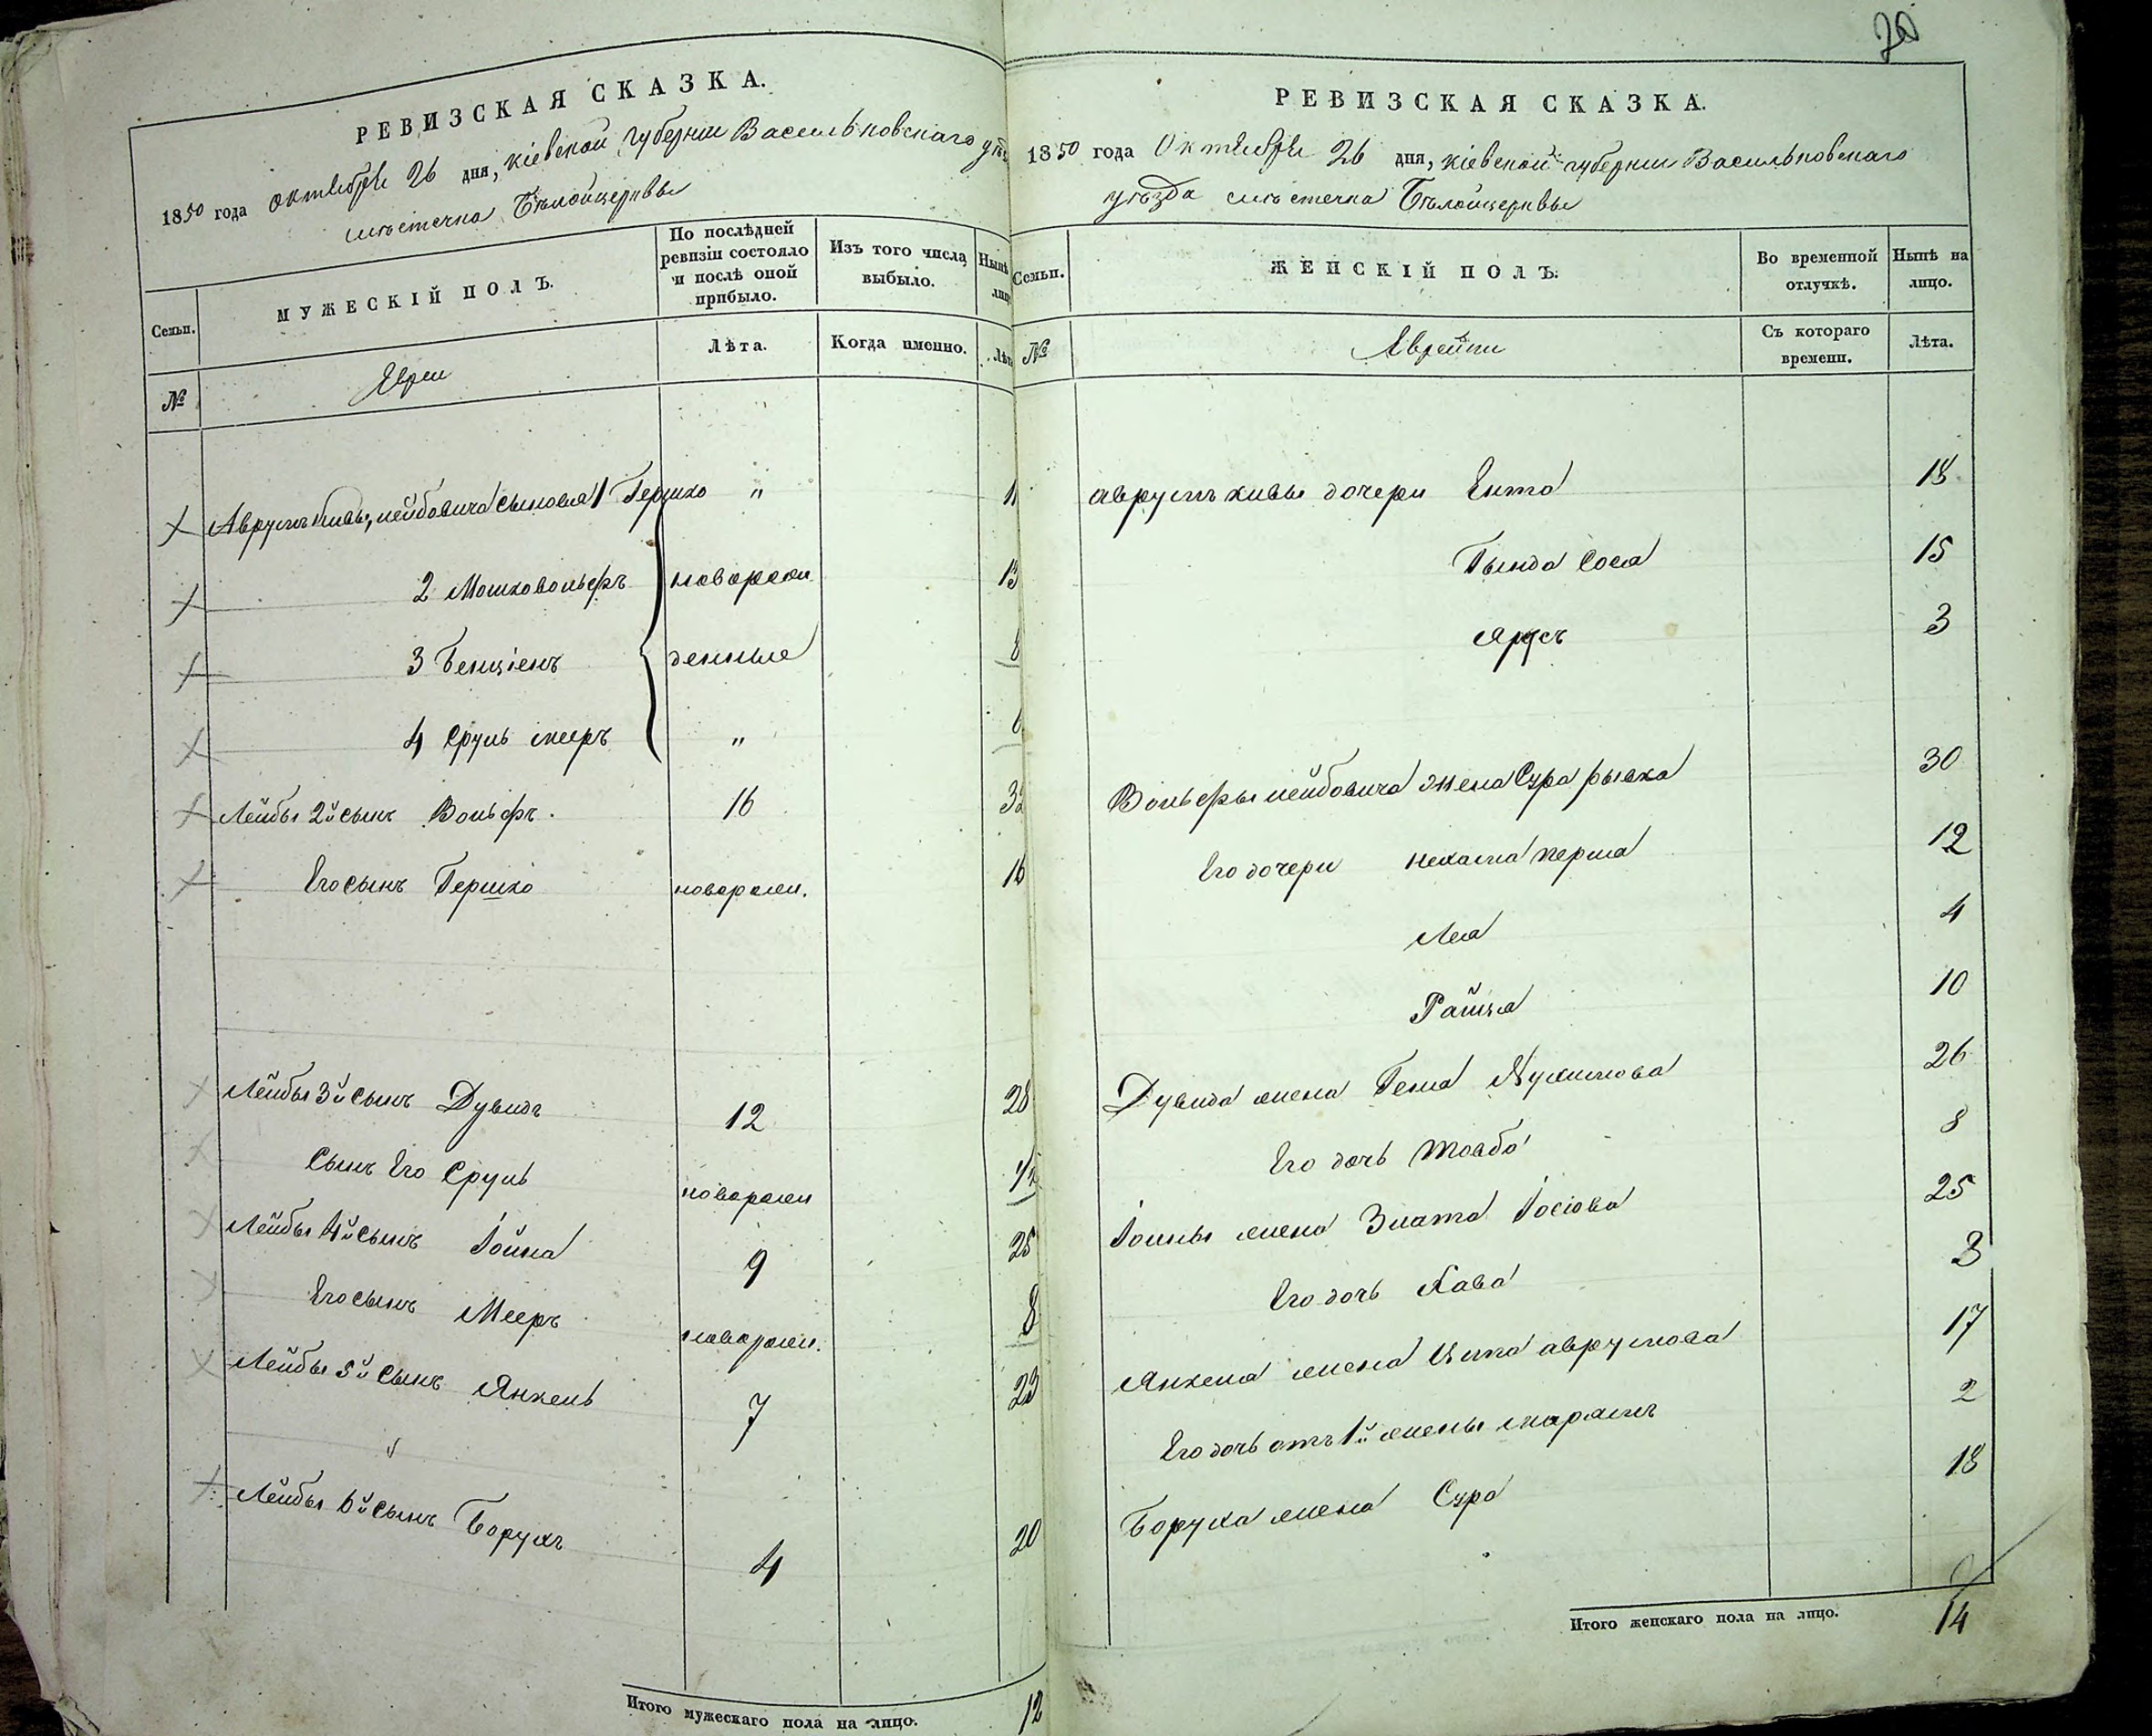 РЕВИЗСКАЯ СКАЗКА.
1850 года октября 26 дня, кіевской губерніи Васильковскаго уѣз
мѣстечка Бѣлойцерквы
Семьи.
МУЖЕСКІЙ ПОЛЪ.
По послѣдней ревизіи состояло и послѣ оной прибыло.
Изъ того числа выбыло.
Нынѣ
лиц
№
Евреи
Лѣта.
Когда именно.
Лѣт
Аврумъ Кивы, лейбовича сыновья 1 Гершко " 11
2 Мошковольфъ новорож 13
3 Бенціенъ денные 8
4 Сруль мееръ " 6
Лейбы 2й сынъ Вольфъ. 16 32
Его сынъ Гершко новорожд. 16
Лейбы 3й сынъ Дувидъ 12 28
Сынъ Его Сруль новорожд
Лейбы 4й сынъ Іойна 9 25
Его сынъ Мееръ новорожд. 8
Лейбы 5й сынъ Янкель 7 23
Лейбы 6й сынъ Борухъ 4 20
Итого мужескаго пола на лицо. 12
20
РЕВИЗСКАЯ СКАЗКА.
1850 года Октября 26 дня, кіевской губерніи Васильковскаго
уѣзда мѣстечка Бѣлойцерквы
Семьи.
ЖЕНСКІЙ ПОЛЪ.
Во временной отлучкѣ.
Нынѣ на лицо.
№
Еврейки
Съ котораго времени.
Лѣта.
аврумъ кивы дочери Ента 18
Гинда Сося 15
3
Вольфы лейбовича жена Сура рывка 30
Его дочери нехама перла 12
Лея 4
Райца 10
Дувида жена Геня 26
Его дочь Товба 8
Іоины жена Злата Іосіова 25
Его дочь Хава 3
Янкеля жена аврумова 17
Его дочь отъ 1й жены марямъ 2
Боруха жена Сура 18
Итого женскаго пола на лицо. 14